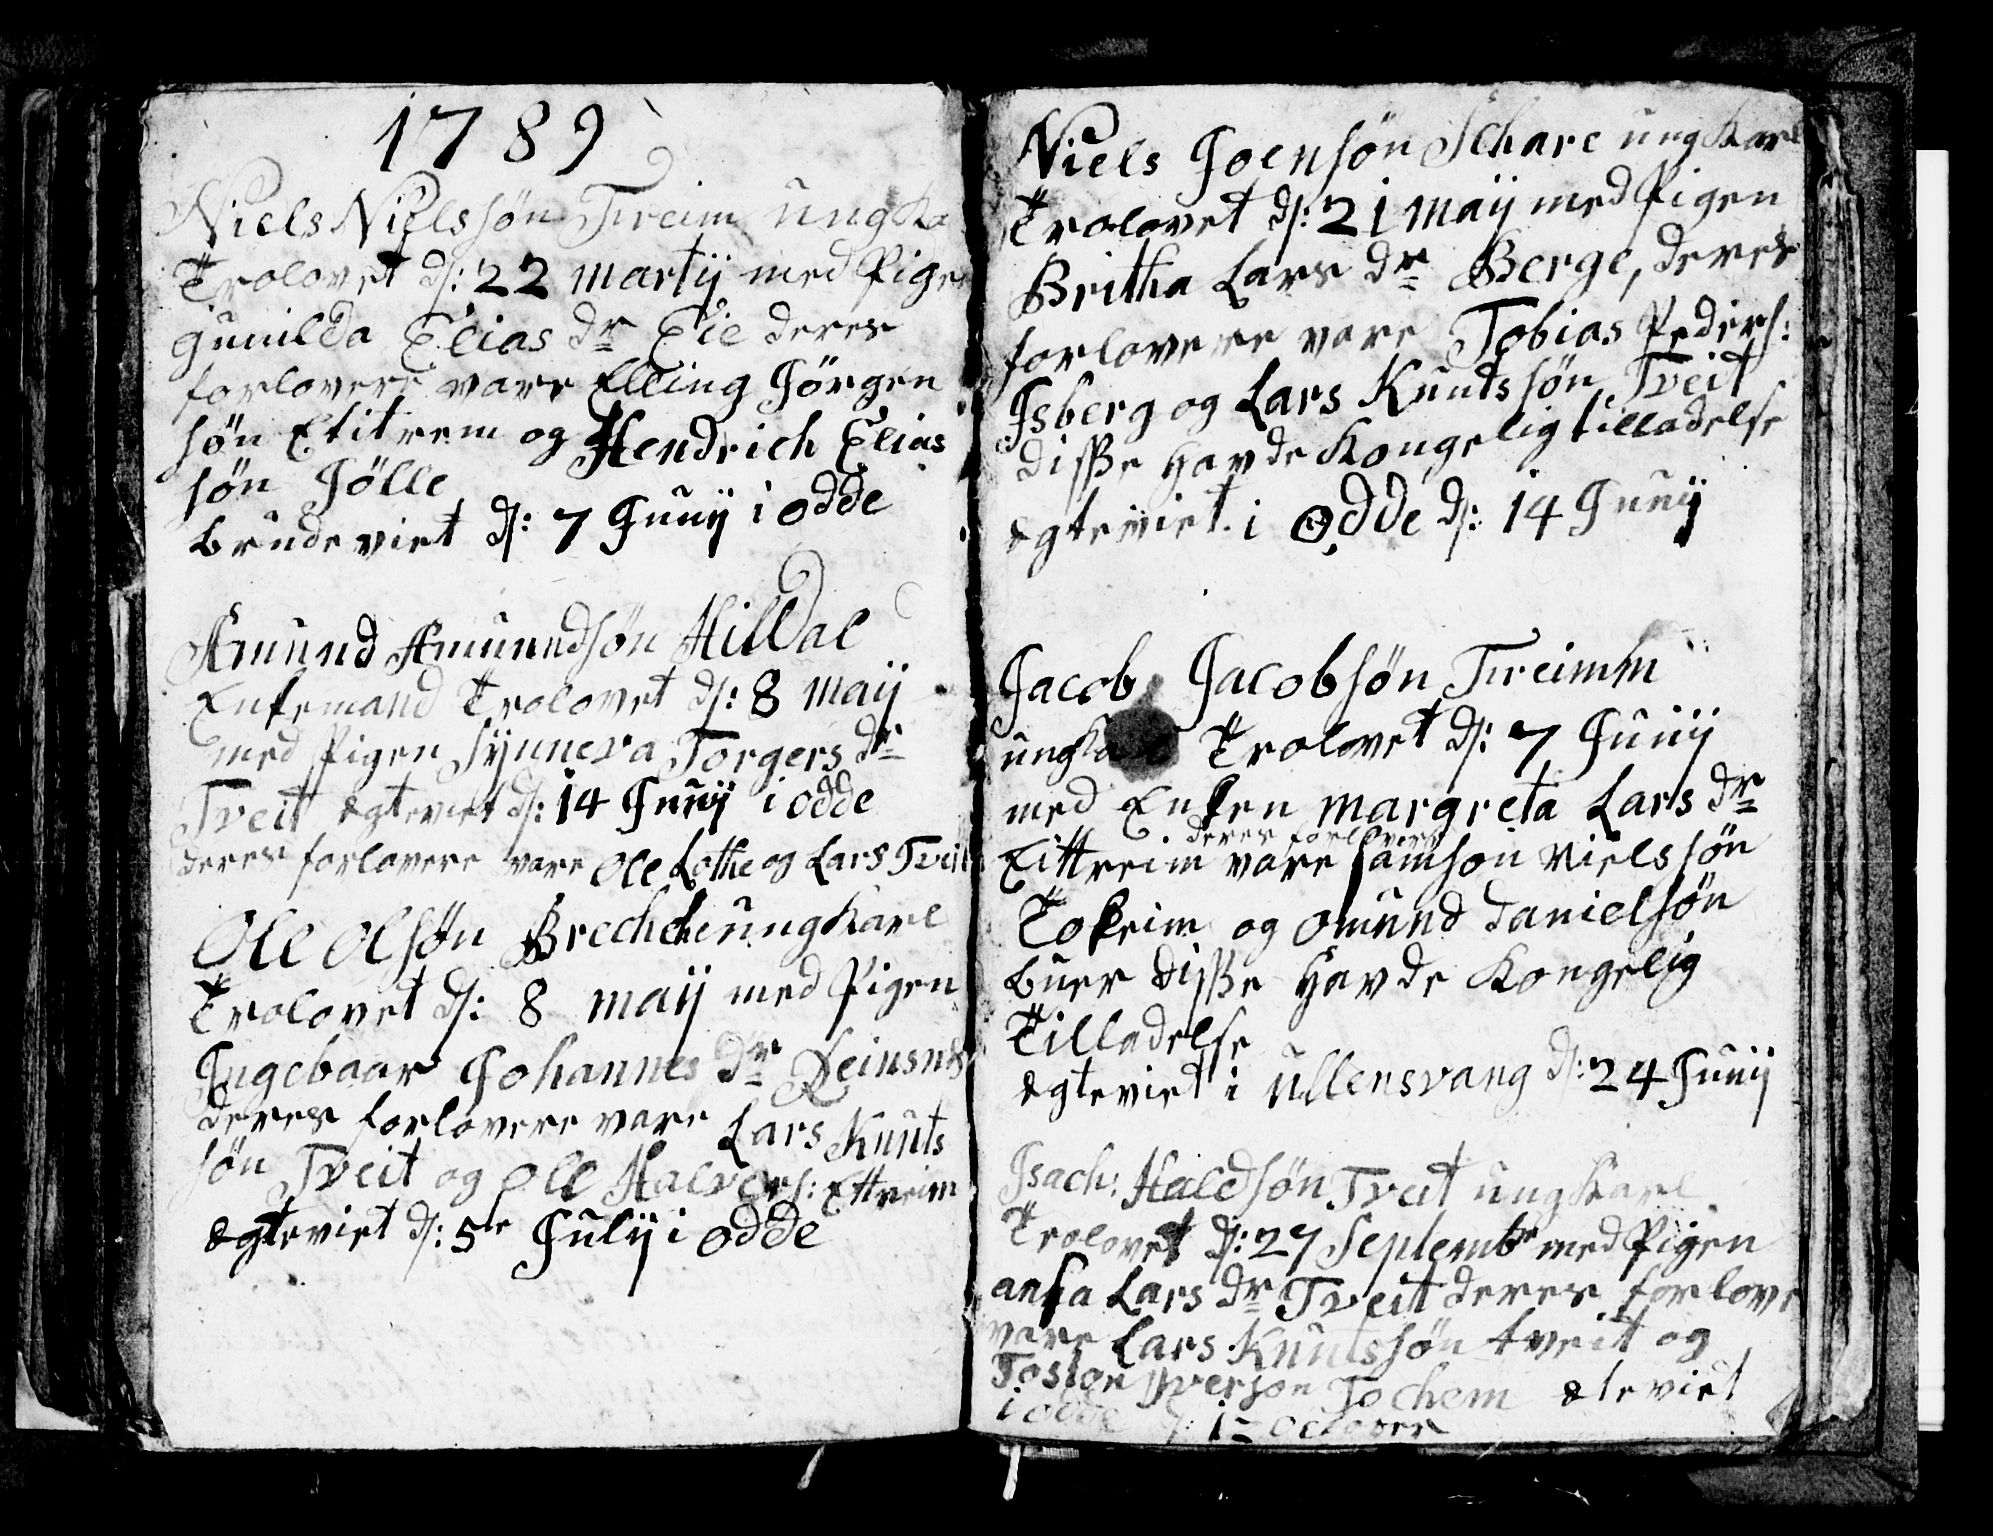 1789
Niels Nielssøn Treim ungka
Trolovet d: 22 martij med Pigen
gunilda Elias dr Eie deres
forlovere vare Elling Jørgen
søn Etitrem og Hendrich Elias
søn Jølle
brudeviet d: 7 Junij i odde
Amund Amundsøn Hildal
Enkemand Trolovet d: 8 maij
med Pigen Synneva Torgers dr
Tveit egteviet d: 14 Junij i odde
deres forlovere vare Ole Lothe og Lars Tveit
Ole olsøn Brechche ungkarl
Trolovet d: 8 maij med Pigen
Ingebaar Johannes dr Reinsnes
deres forlovere vare Lars Knuts
søn Tveit og Ole Halvers: Ettreim
egteviet d: 5te Julij i odde
Niels Joensøn Schare ungkarl
Trolovet d: 21 maij med Pigen
Britha Lars dr Berge, deres
forlovere vare Tobias Peders:
Isberg og Lars Knutssøn Tveit
disse havde Kongelig tilladelse
egteviet i Odde d: 14 Junij
Jacob Jacobsøn Treimm
ungkarl Trolovet d: 7 Junij
med Enken margreta Lars dr
deres forlovere
Eittreim vare samson Nielssøn
Tokeim og omund danielsøn
buer disse havde Kongelig
Tilladelse
egteviet i Ullensvang d: 24 Junij
Isach: Haldsøn Tveit ungkarl
Trolovet d: 27 Septembr med Pigen
anna Lars dr Tveit deres forlove
vare Lars Knutssøn tveit og
Tosten Iverson Jochem eteviet
i odde d: 1 October